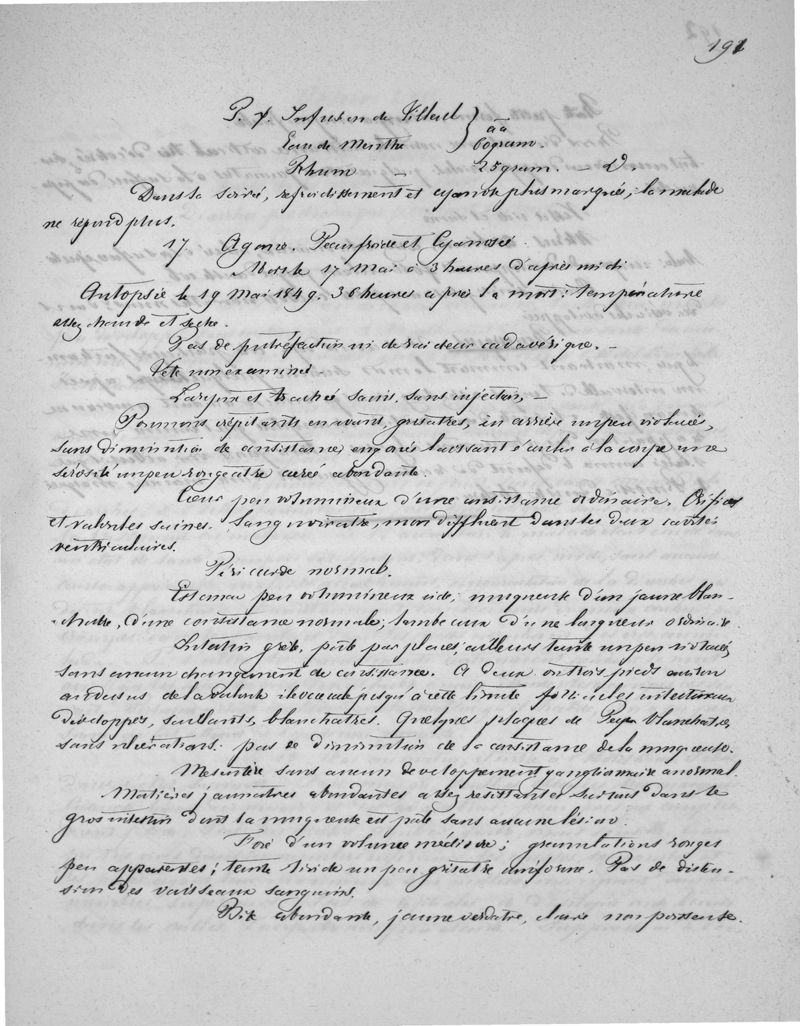 191
P. 4. Infusion de Tilleul } āā
Eau de Menthe } 60 gram.
Rhum — 25 gram. —
Dans la soirée, refroidissement et cyanose plus marqués; la malade
ne répond plus.
17 Agonie. Peau froide et Cyanosée
Morte le 17 Mai à 3 heures d'après midi
Autopsie le 19 Mai 1849. 36 heures après la mort: température
assez chaude et sèche.
Pas de putréfaction ni de raideur cadavérique. —
Tête non examinée —
Larynx et trachée sains, sans injection, —
Poumons crépitants en avant, grisâtres, en arrière un peu violacés,
sans diminution de consistance, engoués laissant écouler à la coupe une
sérosité un peu rougeatre aérée abondante.
Cœur peu volumineux d'une consistance ordinaire. Orifices
et valvules saines. Sang noiratre, mou diffluent dans les deux cavités
ventriculaires.
Péricarde normal.
Estomac peu volumineux vide; muqueuse d'un jaune blan-
châtre, d'une consistance normale; lambeaux d'une longueur ordinaire.
Intestin grêle, pâle par places; ailleurs teinte un peu violacée
sans aucun changement de consistance. A deux ou trois pieds environ
au dessus de la valvule iléocœcale jusqu'à cette limite follicules intestinaux
développés, saillants, blanchatres. Quelques plaques de Peyer blanchatres,
sans ulcérations: pas de diminution de la consistance de la muqueuse.
Mesentère sans aucun developpement ganglionnaire anormal.
Matières jaunâtres abondantes assez resistantes surtout dans le
gros intestin dont la muqueuse est pâle sans aucune lésion.
Foie d'un volume médiocre; granulations rouges
peu apparentes; teinte livide un peu grisatre uniforme. Pas de disten-
sion des vaisseaux sanguins.
Bile abondante, jaune verdatre, claire non poisseuse.